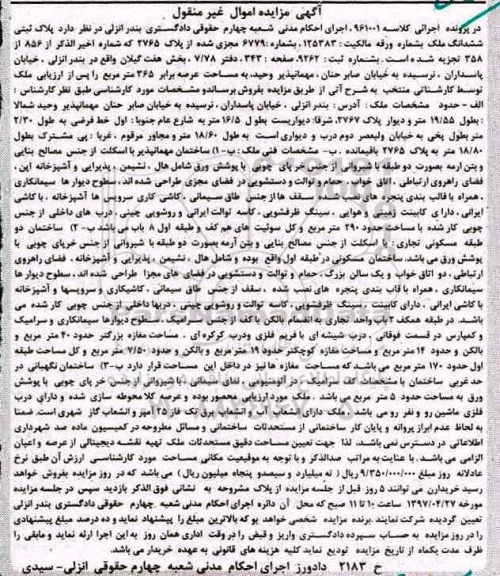 آگهی مزایده اموال غیر منقول
در پرونده اجرائی کلاسه ۹۶۱۰۰۱ اجرای احکام مدنی شعبه چهارم حقوقی دادگستری بندر انزلی در نظر دارد پلاک ثبتی
ششدانگ ملک بشماره ورقه مالکیت: ۱۲۵۳۸۳، بشماره: ۶۷۷۹ مجزی شده از پلاک ۲۷۶۵ که شماره اخیر الذکر از ۸۵۶ از
۳۵۸ تجزیه شده است. بشماره ثبت: ۹۲۶۲، صفحه: ۳۴۳، دفتر ۷/۷۸، بخش هفت گیلان واقع در بندر انزلی، خیابان
پاسداران، نرسیده به خیابان صابر حنان، مهمانپذیر وحید، به مساحت عرصه برابر ۳۶۵ متر مربع را پس از ارزیابی ملک
توسط کارشناس منتخب به شرح آتی از طریق مزایده بفروش برساند و مشخصات مورد کارشناسی طبق نظر کارشناس:
الف - حدود مشخصات ملک: آدرس: بندر انزلی، خیابان پاسداران، نرسیده به خیابان صابر حنان مهمانپذیر وحید شمالا
: بطول ۱۹/۵۵ متر و دیوار پلاک ۲۷۶۷، شرقا: دیواریست بطول ۱۶/۵ متر به شارع عام جنوبا: اول خط فرضی به طول ۲/۳۰
متر بطول پخی به خیابان ولیعصر دوم درب و دیواری است به طول ۱۸/۶۰ متر و مجاور مرقوم، غربا: پی مشترک بطول
۱۸/۸۰ متر به پلاک ۲۷۶۵ باقیمانده. ب- مشخصات فنی ملک: ب-۱) ساختمان مهمانپذیر با اسکلت از جنس مصالح بنایی
و بتن ارمه بصورت دو طبقه با شیروانی از جنس خرپای چوبی با پوشش ورق شامل هال، نشیمن، پذیرایی و آشپزخانه این،
فضای راهروی ارتباطی، اتاق خواب، حمام و توالت و دستشویی در فضای مجزی طراحی شده اند، سطوح دیوار ها سیمانکاری
، همراه با قالب بندی پنجره های نصب شده، سقف ها از جنس طاق سیمانی، کاشی کاری سرویس ها آشپزخانه، با کاشی
ایرانی، دارای کابینت زمینی و هوایی، سینک ظرفشویی، کاسه توالت ایرانی و روشویی چینی، درب های داخلی از جنس
چوبی کار شده با مساحت حدود ۲۹۰ متر مربع و کل سوئیت های هم کف و طبقه اول ۸ باب می باشد ب-۲) ساختمان دو
طبقه مسکونی تجاری: با اسکلت از جنس مصالح بنایی و بتن آرمه بصورت دو طبقه با شیروانی از جنس خرپای چوبی با
پوشش ورق می باشد. ساختمان مسکونی در طبقه اول واقع بوده و شامل هال، نشیمن، پذیرایی و آشپزخانه، فضای راهروی
ارتباطی، دو اتاق خواب و یک سالن بزرگ، حمام و توالت و دستشویی در فضای های مجزا طراحی شده اند، سطوح دیوار ها
سیمانکاری، همراه با قالب بندی پنجره های نصب شده، سقف از جنس طاق سیمانی، کاشیکاری و سرویسها و آشپزخانه
با کاشی ایرانی، دارای کابینت، سینک ظرفشویی، کاسه توالت و روشویی چینی، دربها داخلی از جنس چوبی کار شده می
باشد. در طبقه همکف ۲ باب واحد تجاری به انضمام بالکن با کف از جنس سرامیک، سطوح دیوارها سیمانکاری و سرامیک
و کمپارس در قسمت فوقانی، درب شیشه ای با فریم فلزی و درب کرکره ای. مساحت مغازه بزرگتر حدود ۴۰ متر مربع و
بالکن و حدود ۱۴ متر مربع و مساحت مغازه کوچکتر حدود ۱۹ متر مربع و بالکن و حدود ۷/۵۰ متر مربع و کل مساحت طبقه
اول حدود ۱۷۰ متر مربع می باشد که مساحت مغازه ها نیز در داخل این مساحت قرار دارد ب-۳) ساختمان نگهبانی در
حد غربی ساختمان با مشخصات کف سرامیک، در آلومینیومی، نمای سیمانی، با شیروانی از جنس خرپای چوبی با پوشش
ورق به مساحت حدود ۵ متر مربع می باشد. ملک مورد ارزیابی محصور بوده و عرصه کلا محوطه سازی شده و دارای درب
فلزی ماشین رو و نفر رو می باشد. ملک دارای انشعاب آب و انشعاب برق تک فاز ۲۵ آمپر و انشعاب گاز شهری است. ضمنا
به لحاظ عدم ابراز پروانه و پایان کار ساختمانی از مستحدثات ساختمانی و مسائل مطروحه در کمیسیون ماده صد شهرداری
اطلاعاتی در دسترس نمی باشد، لذا جهت تعیین مساحت دقیق مستحدثات ملک تهیه نقشه دیجیتالی از عرصه و اعیان
الزامی می باشد. با عنایت به مراتب صدالذکر و با توجه به موقعیت مکانی مساحت مورد کارشناسی ارزش آن طبق نرخ
عادلانه روز مبلغ ۹/۳۵۰/۰۰۰/۰۰۰ ریال (نه میلیارد و سیصد و پنجاه میلیون ریال) می باشد که در روز مزایده بفروش خواهد
رسید خریداران می توانند ۵ روز قبل از جلسه مزایده از پلاک مشروحه به نشانی فوق الذکر بازدید سپس در جلسه مزایده
مورخه ۱۳۹۷/۰۴/۲۷ ساعت ۱۰ تا ۱۱ صبح که محل آن دائره اجرای احکام مدنی شعبه چهارم حقوقی دادگستری بندر انزلی
تعیین گردیده شرکت نمایند. برنده مزایده شخصی خواهد بود که بالاترین مبلغ را پیشنهاد نماید و ده درصد مبلغ پیشنهادی
را در روز مزایده به حساب سپرده دادگستری واریز و قبض را در وقت اداری همان روز به این اجرا ارئه نماید و مابقی را
ظرف مدت یکماه از تاریخ مزایده تودیع نماید کلیه هزینه های قانونی به عهده خریدار می باشد.
ح ۲۱۸۳ دادورز اجرای احکام مدنی شعبه چهارم حقوقی انزلی- سیدی